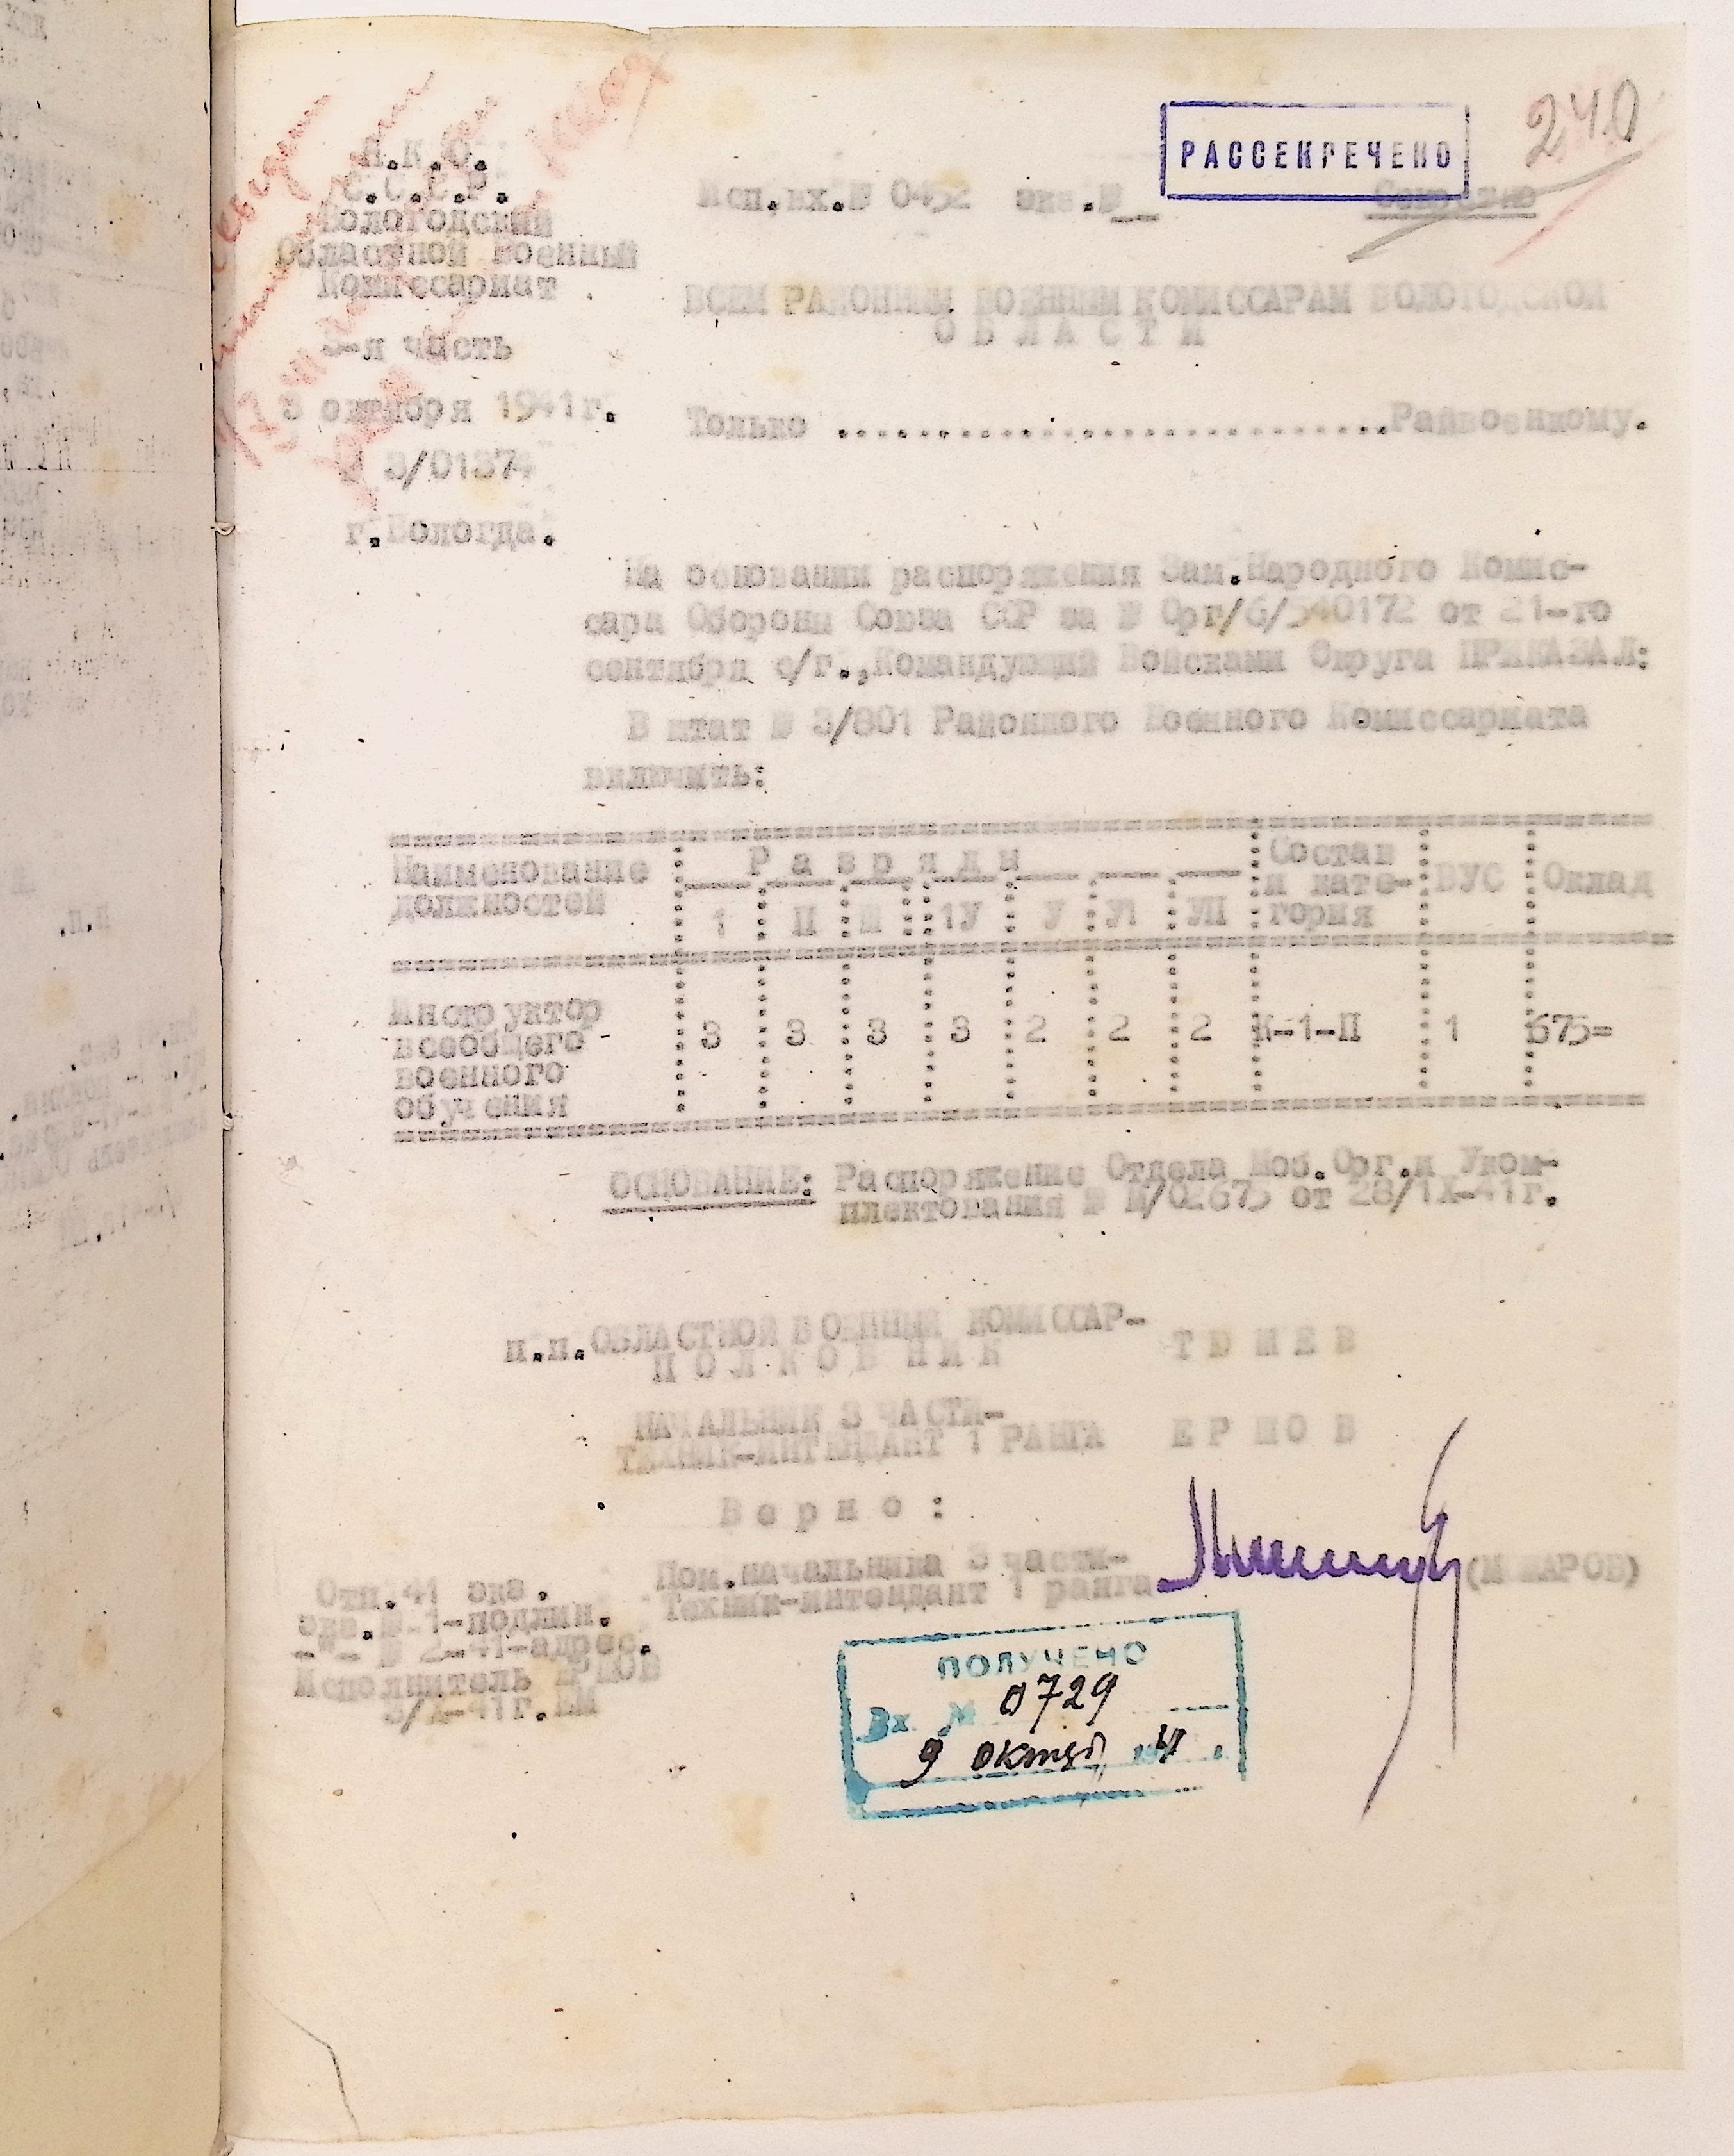 240
РАССЕКРЕЧЕНО
Н.К.О.
С.С.С.Р.
Вологодский
Областной Военный
Комиссариат
3-я часть
3 октября 1941г.
№ 3/01374
г.Вологда.
Исп.вх.№ 0452 экз.№
Секретно
ВСЕМ РАЙОННЫМ ВОЕННЫМ КОМИССАРАМ ВОЛОГОДСКОЙ
О Б Л А С Т И
Только ..............................Райвоенкому.
На основании распоряжения Зам.Народного Комис-
сара Обороны Союза ССР за № Орг/6/540172 от 21-го
сентября с/г.,Командующий Войсками Округа ПРИКАЗАЛ:
В штат № 3/801 Районного Военного Комиссариата
включить:
Наименование должностей : Р а з р я д ы : Состав и кате-гория : ВУС : Оклад
1 : II : III : 1У : У : У1 : УII
Инструктор всеобщего военного обучения : 3 : 3 : 3 : 3 : 2 : 2 : 2 : К-1-П : 1 : 675=
ОСНОВАНИЕ: Распоряжение Отдела Моб.Орг.и Уком-
плектования № М/02675 от 28/1Х-41г.
п.п.ОБЛАСТНОЙ ВОЕННЫЙ КОМИССАР-
П О Л К О В Н И К Т Ю Н Е В
НАЧАЛЬНИК 3 ЧАСТИ-
ТЕХНИК-ИНТЕНДАНТ 1 РАНГА Е Р Ш О В
В е р н о :
Пом.начальника 3 части-
Техник-интендант 1 ранга
Отп.41 экз.
экз.№ 1-подлин.
-"- № 2-41-адрес.
Исполнитель ЕРШОВ
3/Х-41г.
ПОЛУЧЕНО
Вх. № 0729
9 октяб 1941